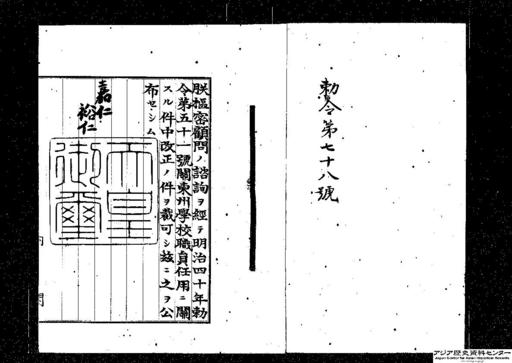 勅令第七十八號
朕樞密顧問ノ諮詢ヲ經テ明治四十年勅
令第五十一號關東州學校職員任用ニ關
スル件中改正ノ件ヲ裁可シ玆ニ之ヲ公
布セシム
嘉仁
裕仁
天皇
御璽
内閣
アジア歴史資料センター
Japan Center for Asian Historical Records